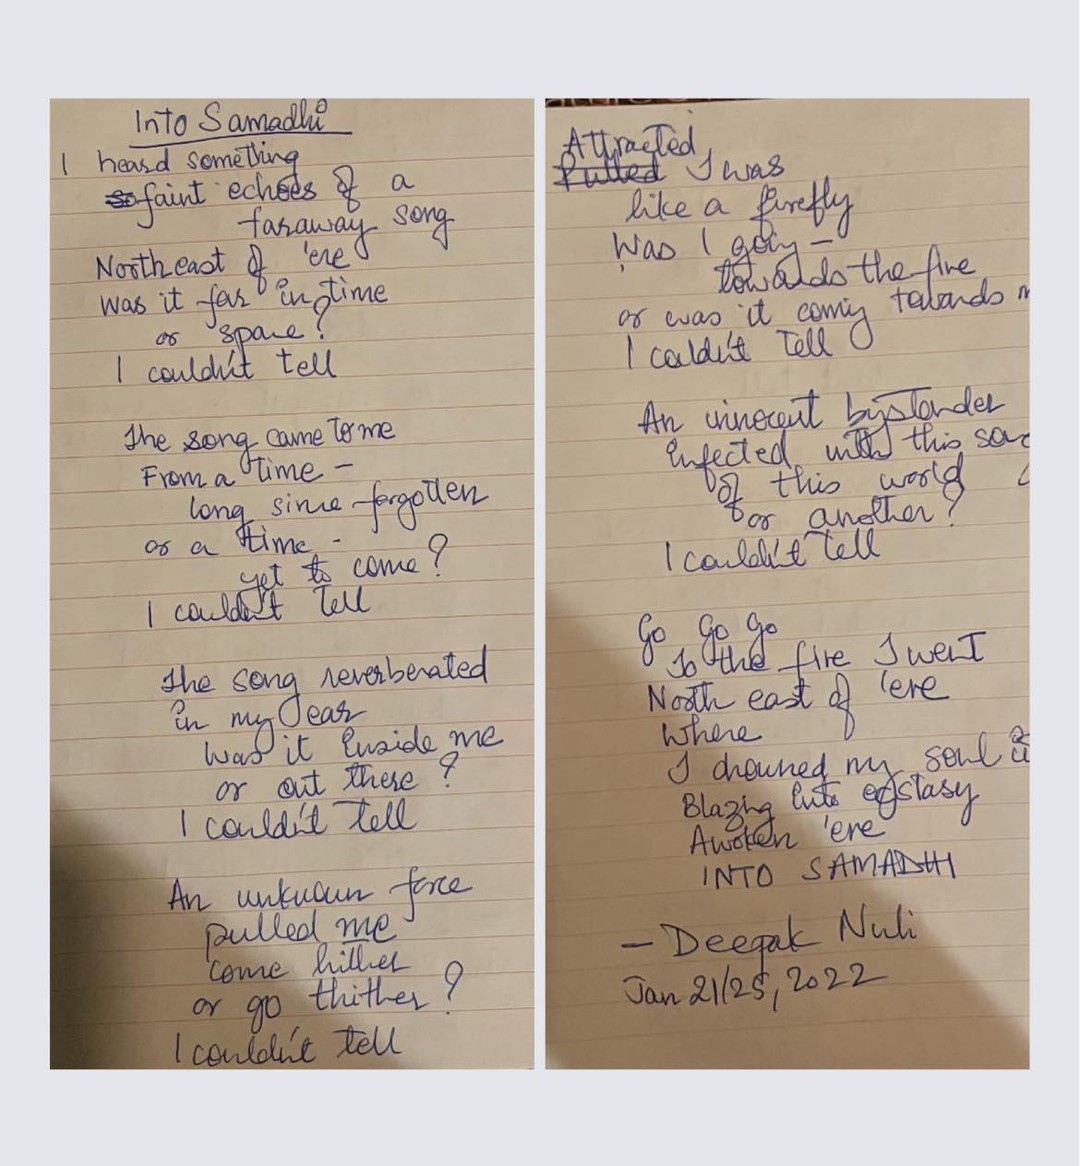 Into Samadhi
I heard something
faint echoes of a
faraway song
North east of 'ere
Was it far in time
or space?
I couldn't tell
The song came to me
From a time -
long since forgotten
or a time -
yet to come?
I couldn't tell
The song reverberated
in my ear
Was it inside me
or out there?
I couldn't tell
An unknown force
pulled me
come hither
or go thither?
I couldn't tell
Attracted
Pulled I was
like a firefly
Was I going -
towards the fire
or was it coming towards
I couldn't tell
An innocent bystander
Infected with this
Of this world
or another?
I couldn't tell
Go Go Go
To the fire I went
North east of 'ere
Where
I drowned my soul
Blazing into ecstasy
Awoken 'ere
INTO SAMADHI
- Deepak Nuli
Jan 21/25, 2022